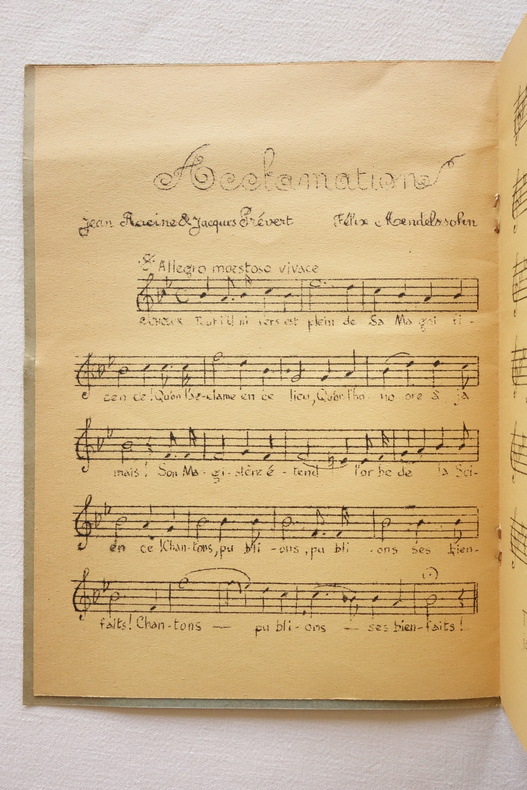 Acclamation
Jean Racine & Jacques Prévert Félix Mendelssohn
Allegro maestoso vivace
Tout l'U ni vers est plein de Sa Ma gni fi -
cen ce! Qu'on l'ac-clame en ce lieu, Qu'on l'ho no ore à ja
mais! Son Ma - gi - stère é - tend l'or be de la Sci-
en ce! Chan-tons, pu bli - ons, pu bli - ons ses bien-
faits! Chan-tons — pu bli-ons — ses bien-faits!